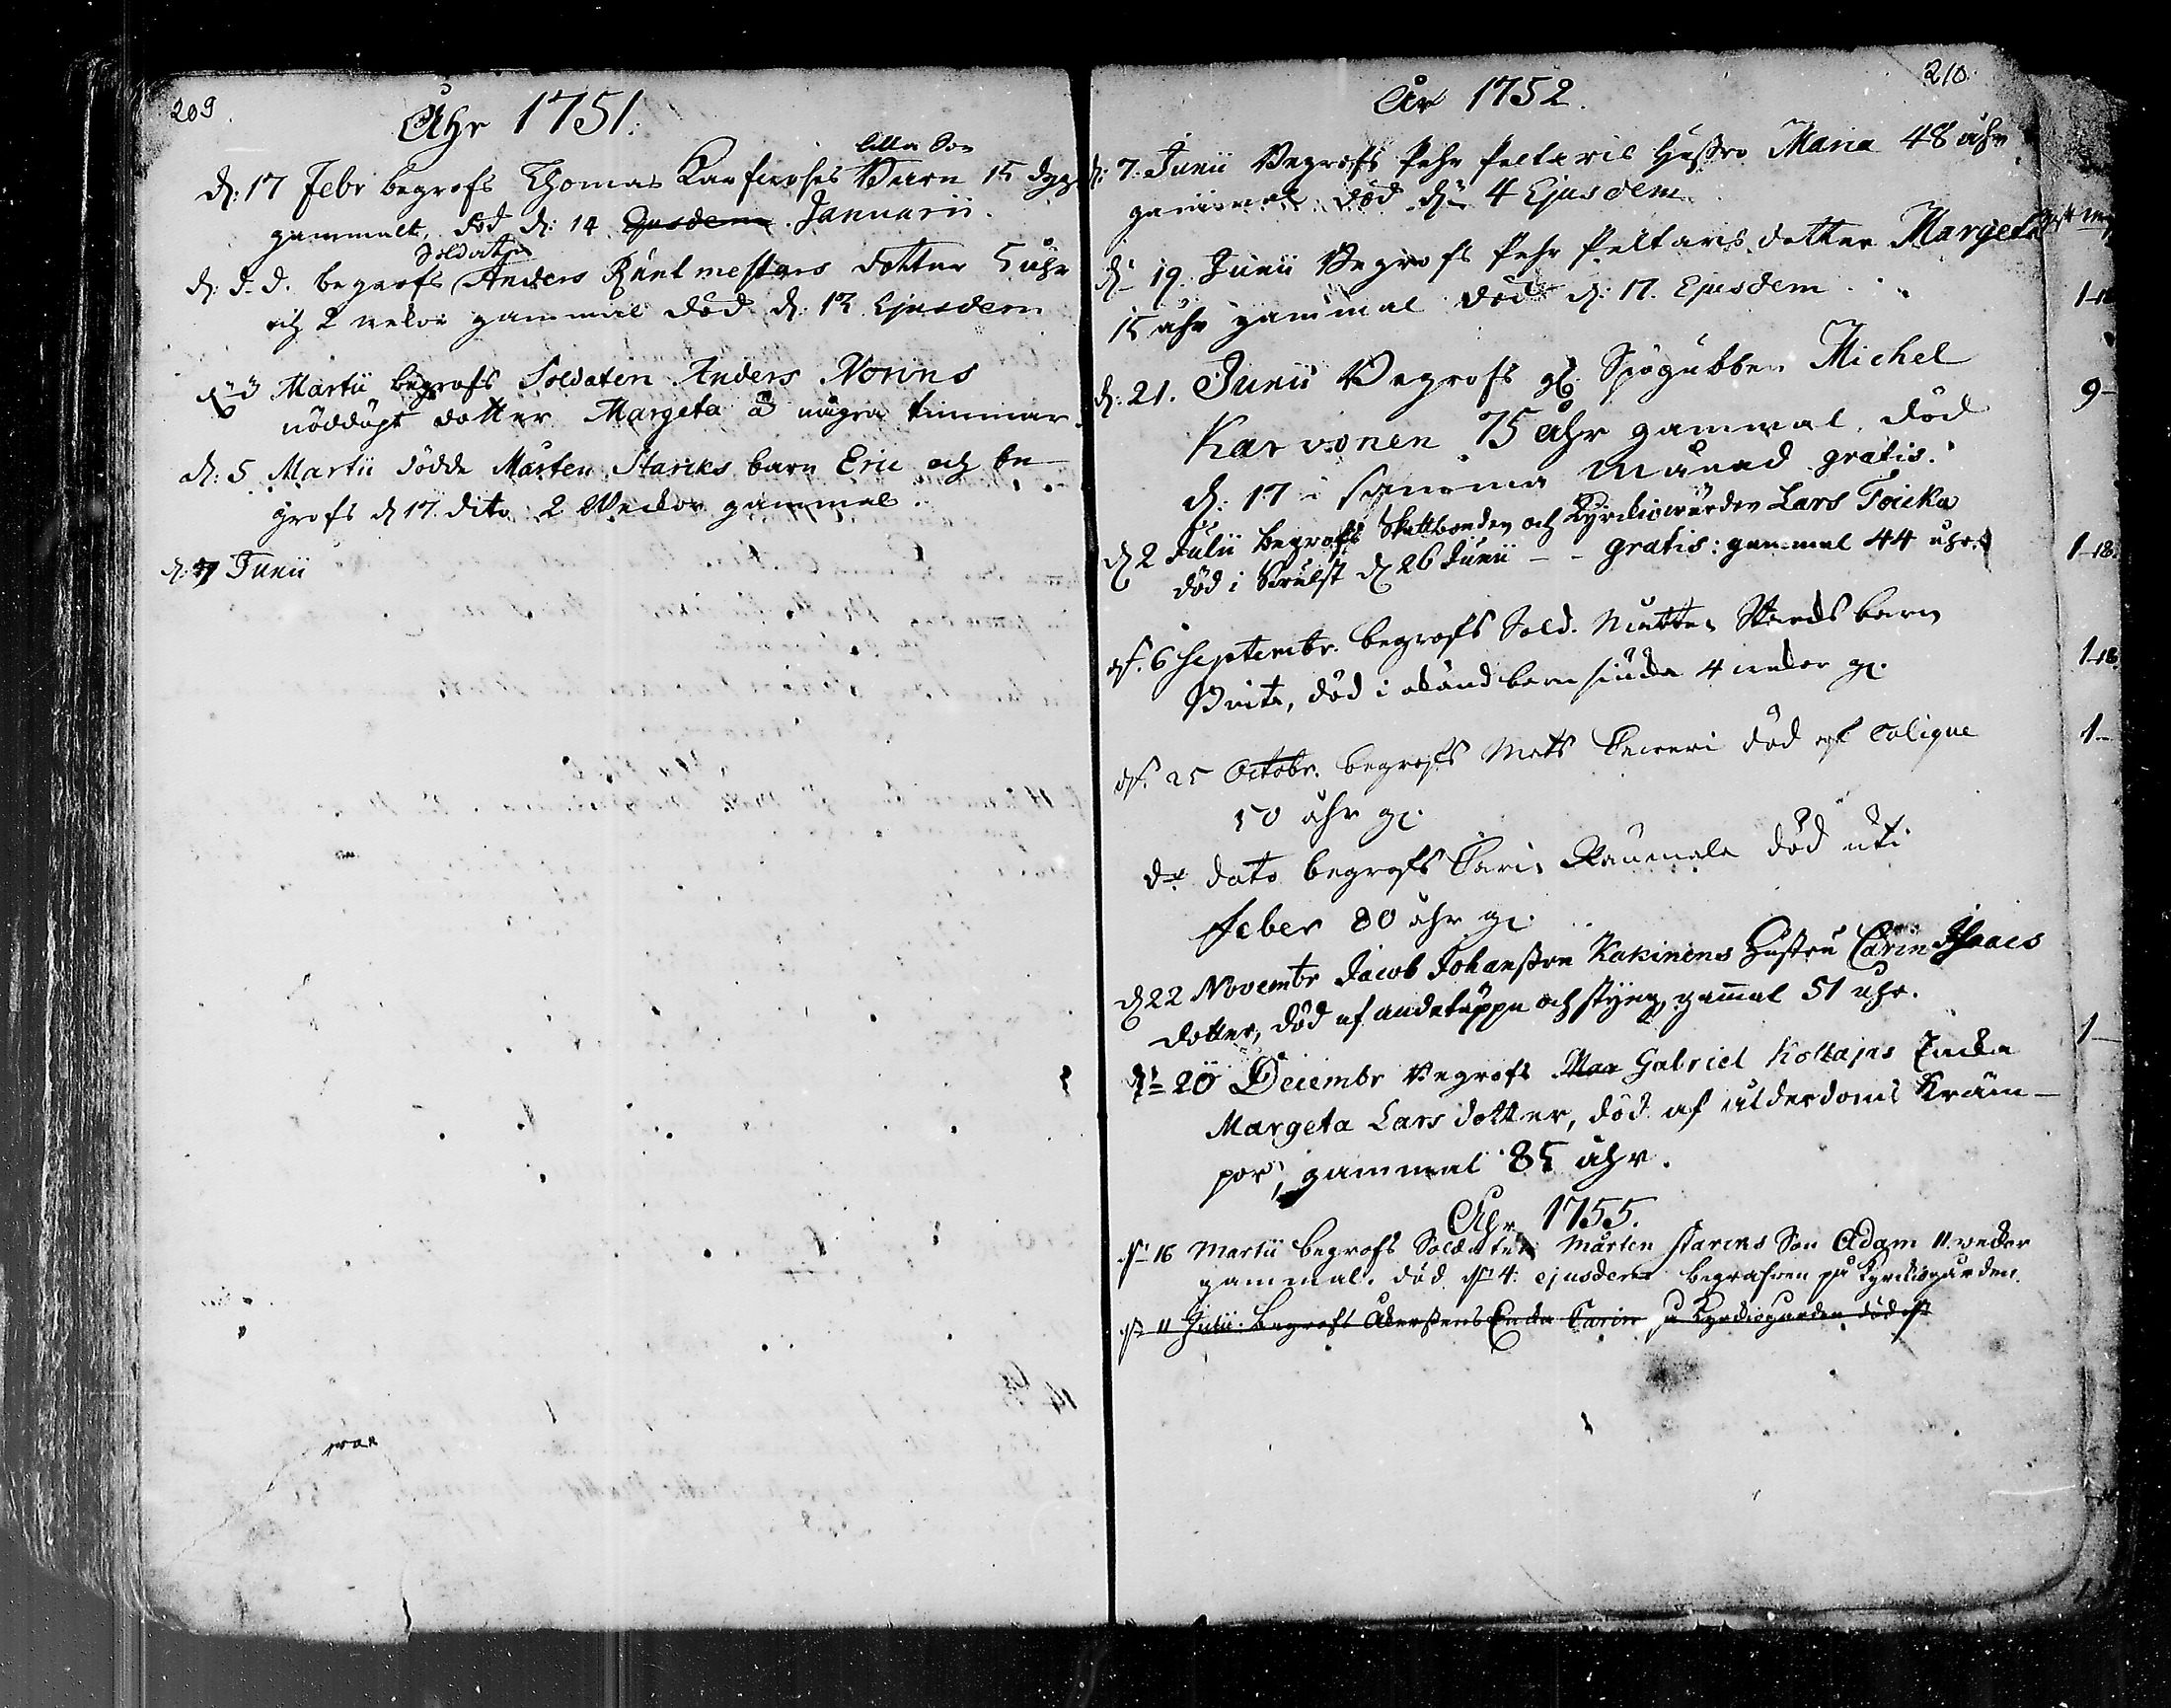 209.
Åhr 1751.
lilla Son
d: 17 Febr begrofs Thomas Barn 15 dygn
gammalt, död d: 14 Ejusdem Januarii.
Soldaten
d: d. d. begrofs Anders Rüntmesters dotter 5 åhr
och 2 vekor gammal död d: 13 Ejusdem
Martii begrofs Soldaten Anders Norins
nöddöpt dotter Margeta å några timmar.
d: 5 Martii dödde Mårten Starcks barn Eric och be-
grofs d 17 dito 2 Veckor gammal.
d: 7 Junii
210.
År 1752.
d: 7. Junii Begrofs Pehr Peltaris Hustro Maria 48 åhr
gammal död d: 4 Ejusdem
d: 19. Junii Begrofs Pehr Peltaris dotter Margeta
15 åhr gammal död d: 17. Ejusdem
1-18
d: 21. Junii Begrofs gl. Michel
9-
Karvonen 75 åhr gammal, död
d: 17 i samma månad gratis.
d 2 Julii begrofs Skattbonden och Kyrckiowärden Lars Toicka
död i d 26 Junii - - gratis: gammal 44 åhr
1-18.
d. 6 Septembr. begrofs Sold. barn
Brita, död i okänd barnsiuka 4 vekor gl.
1-18.
d. 25 Octobr. begrofs Mats död af Colique
1-
50 åhr gl.
do dato begrofs Carin död uti
feber 80 åhr gl.
d 22 Novembr Jacob Johansson Kakinens Hustru Carin Isaacs
dotter, död af andetäppa och styng, gammal 51 åhr.
1-
d: 20 Decembr Begrofs Gabriel Koltajas Encka
Margeta Lars dotter, död af ålderdoms Kräm-
por, gammal 85 åhr.
Åhr 1755.
d: 16 Martii begrofs Soldaten Mårten Starcks Son Adam 11 veckor
gammal. död d: 4. ejusdem begrafven på Kyrckiogården.
d: 11 Julii begrofs Encka Carin på Kyrckiogården